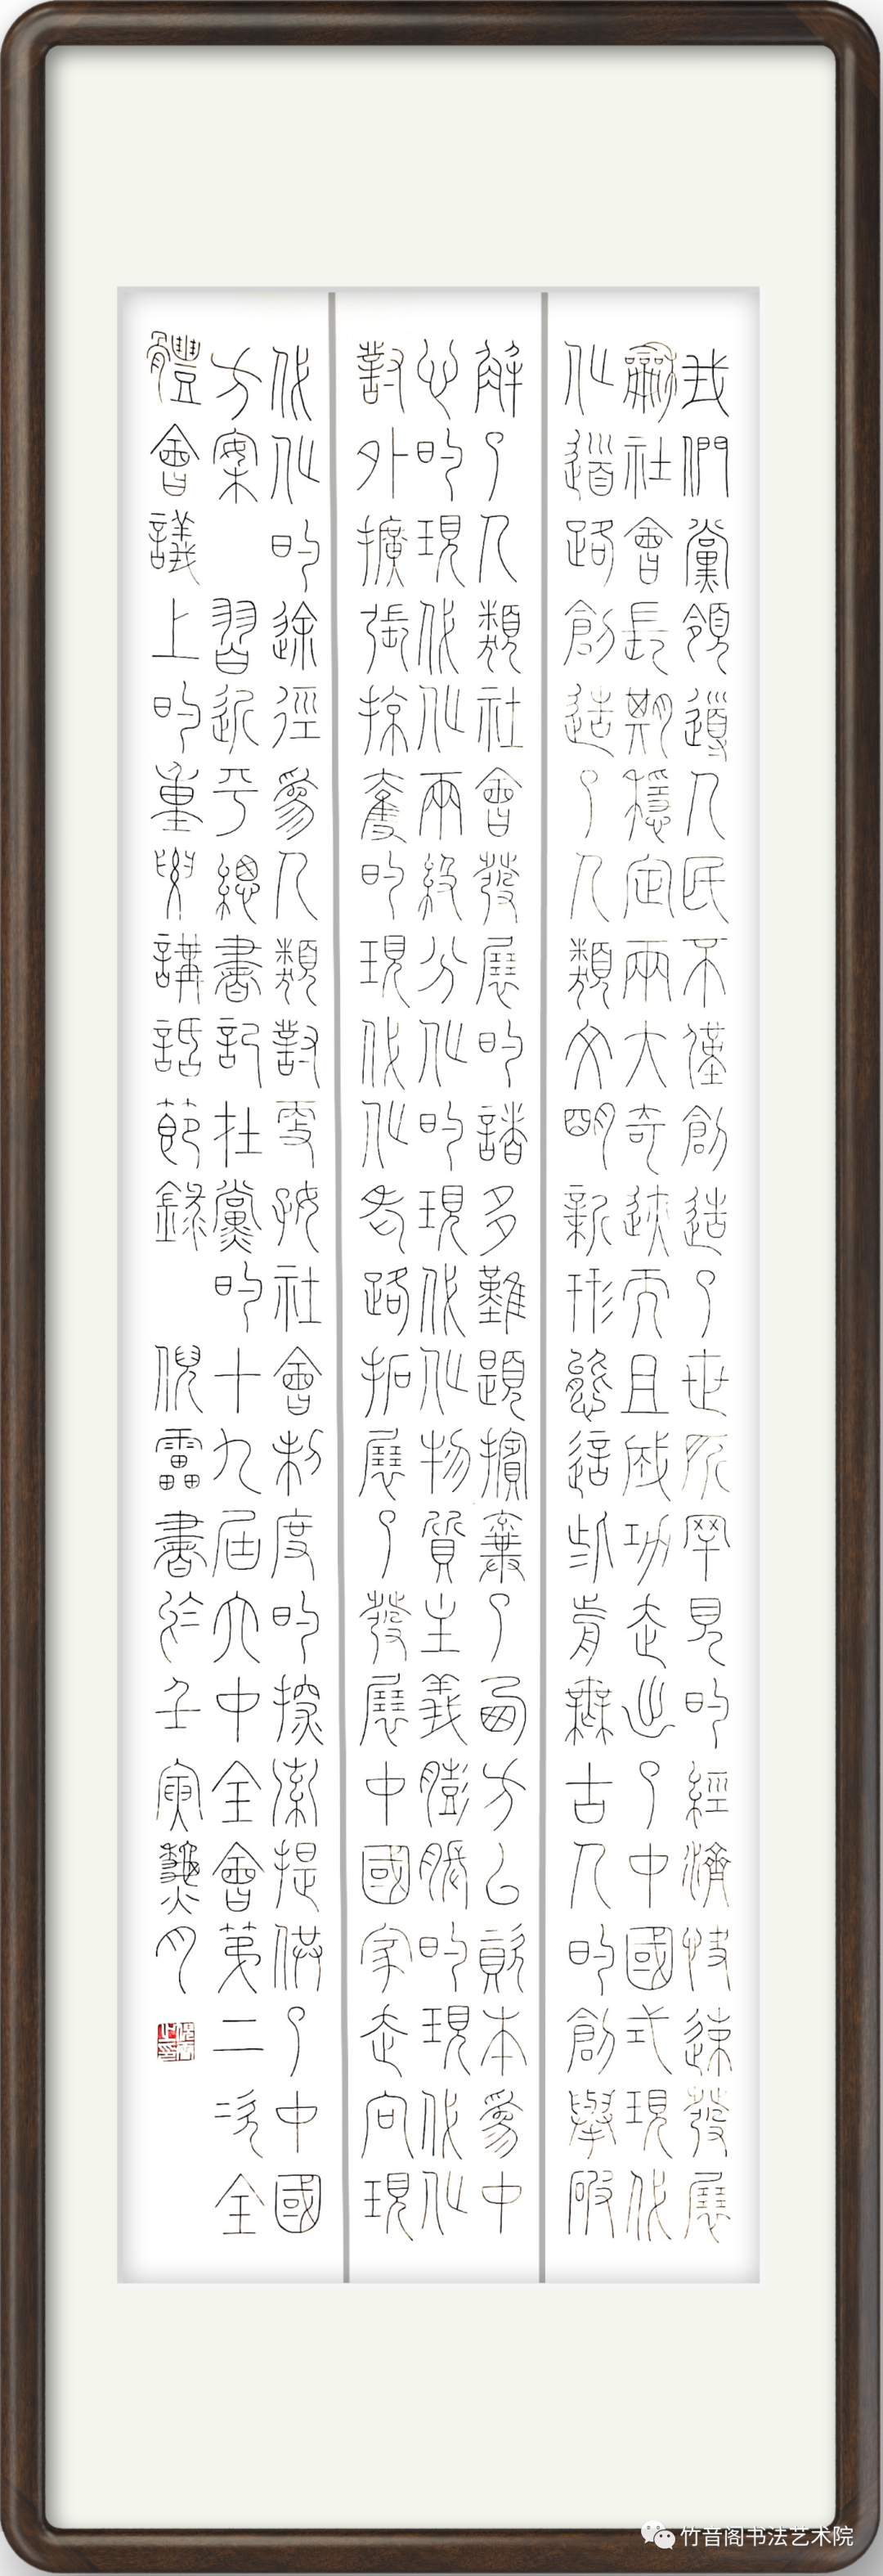 我們黨領導人民不僅創造了世所罕見的經濟快速發展
龢社會長期穩定兩大奇迹而且成功走出了中國式現代
化道路創造了人類文明新形態這些前無古人的創舉破
解了人類社會發展的諸多難題擯棄了西方以資本為中
心的現代化兩級分化的現代化物質主義膨脹的現代化
對外擴張掠奪的現代化老路拓展了發展中國家走向現
代化的途徑為人類對更好社會制度的探索提供了中國
方案 習近平總書記在黨的十九屆六中全會第二次全
體會議上的重要講話節錄 倪雷書於壬寅月
竹音阁书法艺术院